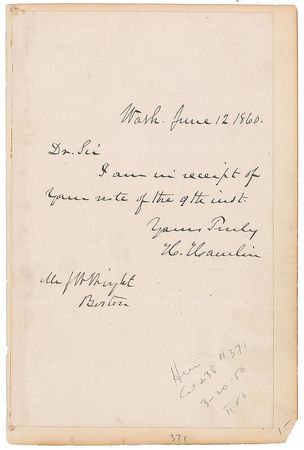 Wash. June 12 1860.
Dr. Sir
I am in receipt of
your note of the 9th inst.
Yours Truly
H. Hamlin
Mr J W Wright
Boston
Cat 238 # 371
3-20-50
371
1-